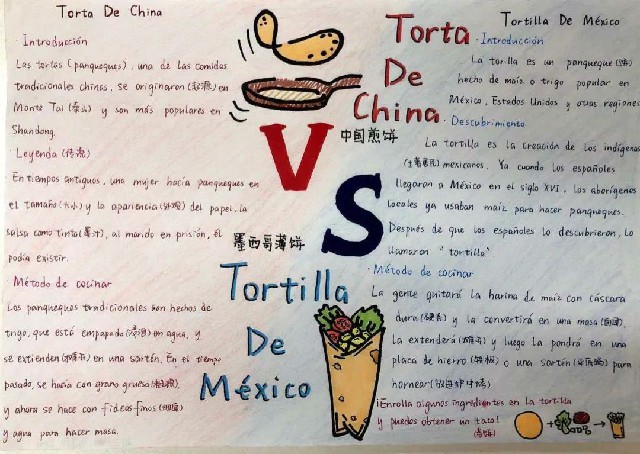 Torta De China
· Introducción
Las tortas (panqueques), una de las comidas
tradicionales chinas, se originaron (起源) en
Monte Tai (泰山) y son más populares en
Shandong.
· Leyenda (传说)
En tiempos antiguos, una mujer hacía panqueques en
el tamaño (大小) y la apariencia (外观) del papel, la
salsa como tinta (墨汁), al marido en prisión, él
podía existir.
Método de cocinar
Los panqueques tradicionales son hechos de
trigo, que está empapado (浸泡) en agua, y
se extienden en una sartén. En el tiempo
pasado, se hacía con grano grueso (粗粮),
y ahora se hace con fideos finos (细面)
y agua para hacer masa.
Torta
De
China
中国煎饼
VS
墨西哥薄饼
Tortilla
De
México
Tortilla De México
· Introducción
La torilla es un panqueque (饼)
hecho de maíz o trigo popular en
México, Estados Unidos y otras regiones
· Descubrimiento
La tortilla es la creación de los indígenas
(土著居民) mexicanos. Ya cuando los españoles
llegaron a México en el siglo XVI, los aborígenes
locales ya usaban maíz para hacer panqueques.
Después de que los españoles lo descubrieron, lo
llamaron "tortilla"
· Método de cocinar
La gente quitará la harina de maíz con cáscara
dura (硬壳) y la convertirá en una masa (面团),
la extenderá y luego la pondrá en una
placa de hierro (铁板) o una sartén para
hornear
¡Enrolla algunos ingredientes en la tortilla
y puedes obtener un taco!